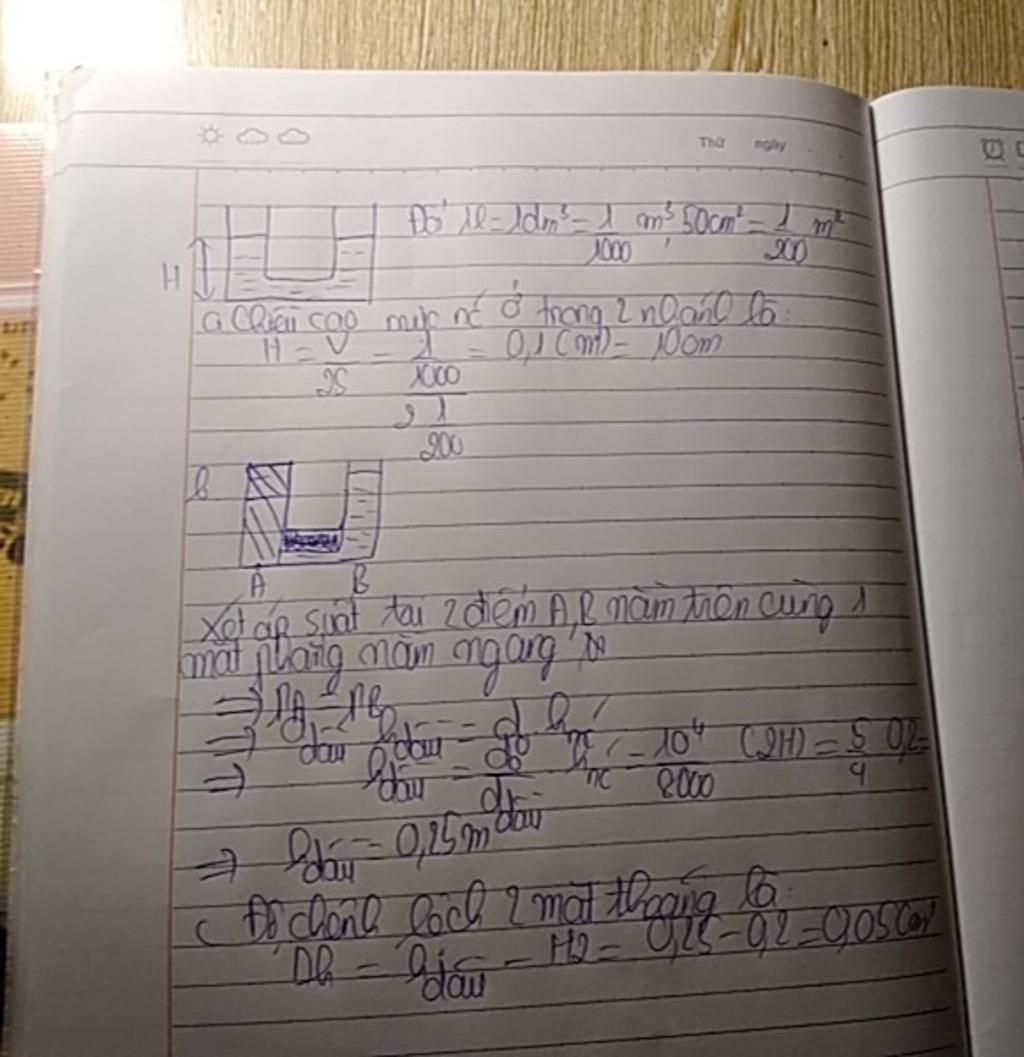 Thứ ngày
Đổi 1l = 1dm³ = 1/1000 m³, 50cm² = 1/200 m²
H
a Chiều cao mực nc ở trong 2 nhánh là:
H = V/2S = 1/1000 / 2 1/200 = 0,1 (m) = 10cm
b
A B
Xét áp suất tại 2 điểm A, B nằm trên cùng 1
mặt phẳng nằm ngang
=> PA = PB
=> d dầu h dầu = d h nc
=> h dầu = do/d dầu h nc = 10⁴/8000 (2H) = 5/4 0,2 =
=> h dầu = 0,25m
c Độ chênh lệch 2 mặt thoáng là:
Dh = h dầu - H2 = 0,25 - 0,2 = 0,05 (m)